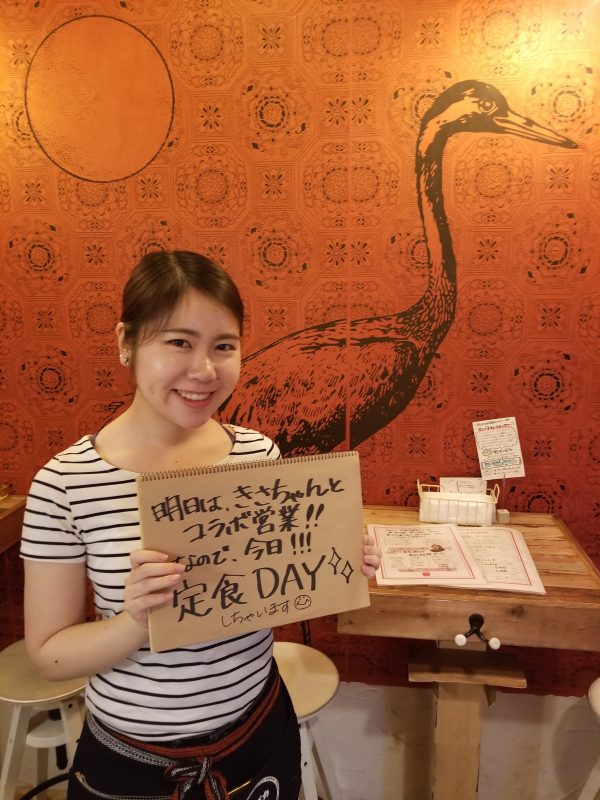 明日は、きさちゃんと
コラボ営業!!
なので、今日!!!
定食DAY
しちゃいます